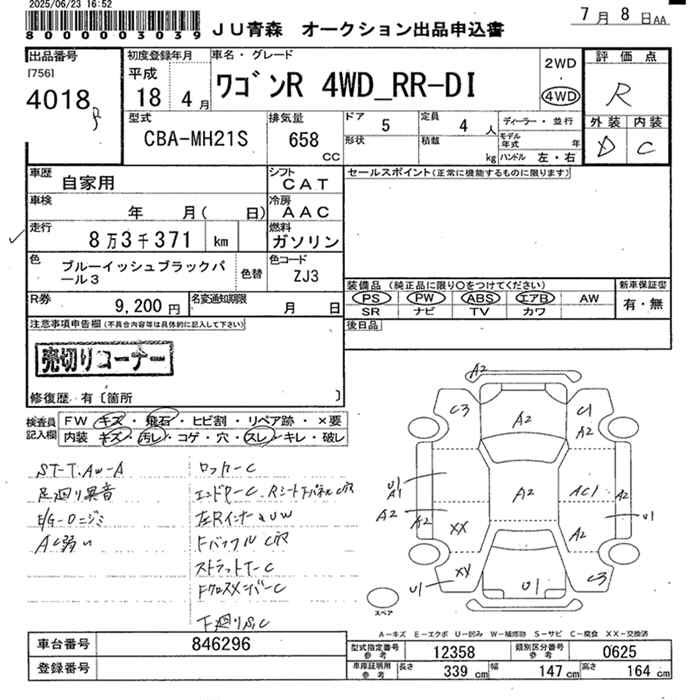 2025/06/23 16:52
8000003039
JU青森 オークション出品申込書
7月8日AA
出品番号
[756]
4018
初度登録年月
平成
18 4月
車名・グレード
ワゴンR 4WD_RR-DI
2WD
4WD
評価点
R
外装 内装
D C
型式
CBA-MH21S
排気量
658
CC
ドア
5
定員
4人
形状
積載
kg
ディーラー・並行
モデル年式 年
ハンドル 左・右
車歴
自家用
シフト
CAT
セールスポイント(正常に機能するものに限ります)
車検
年 月( 日)
冷房
AAC
走行
8万3千371 km
燃料
ガソリン
色
ブルーイッシュブラックパール3
色替
色コード
ZJ3
装備品(純正品に限り○をつけてください)
PS PW ABS エアB AW
SR ナビ TV カワ
新車保証書
有・無
R券
9,200円
名変通知期限
月 日
後日品
注意事項申告欄(不具合内容等は具体的に記入して下さい)
売切りコーナー
修復歴 有〔箇所 〕
検査員記入欄
FW キズ・飛石・ヒビ割・リペア跡・×要
内装 キズ・汚レ・コゲ・穴・スレ・キレ・破レ
ST-T.AW-A
足廻り異音
E/G-Oニジミ
AC弱い
ロッカーC
左Rインナー
ストラットT-C
FクロスメンバーC
A2
C3
A2
C1
A2
U1
A1
A2
A2
A2
AC1
A2
U1
XX
A2
XX
U1
U1
C3
スペア
A-キズ E-エクボ U-凹み W-補修跡 S-サビ C-腐食 XX-交換済
車台番号
846296
登録番号
型式指定番号
参考
12358
類別区分番号
参考
0625
車庫証明用
参考
長さ
339 cm
幅
147 cm
高さ
164 cm